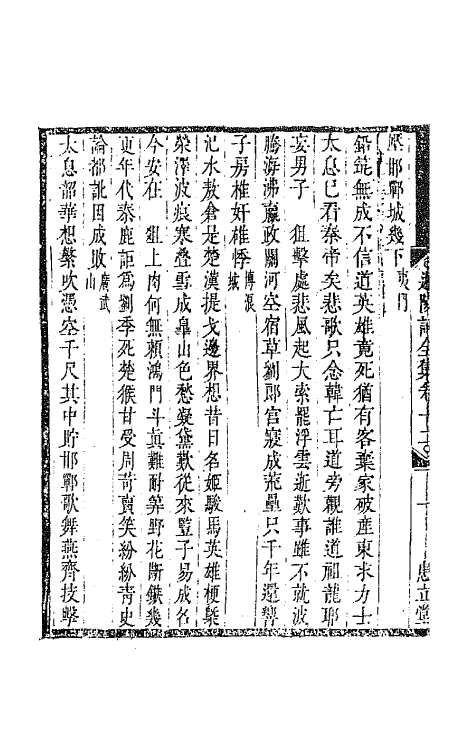 壓邯鄲城幾下夷門
鉛筑無成不信道英雄竟死猶有客棄家破產東求力士
太息已看秦帝矣悲歌只念韓亡耳道旁觀誰道祖龍耶
妄男子 狙擊處悲風起大索罷浮雲逝歎事雖不就波
騰海沸嬴政關河空宿草劉郎宮寢成荒壘只千年還響
子房椎奸雄悸博浪城
汜水敖倉是楚漢提戈邊界想昔日名姬駿馬英雄梗槩
滎澤波痕寒疊雪成臯山色愁凝黛歎從來豎子易成名
今安在 俎上肉何無賴鴻門斗真難耐算野花斷鏃幾
更年代秦鹿詎為劉季死楚猴甘受周苛賣笑紛紛青史
論都訛因成敗廣武山
太息韶華想縈吹憑空千尺其中貯邯鄲歌舞燕齊技擊
全集卷十二
惠立堂